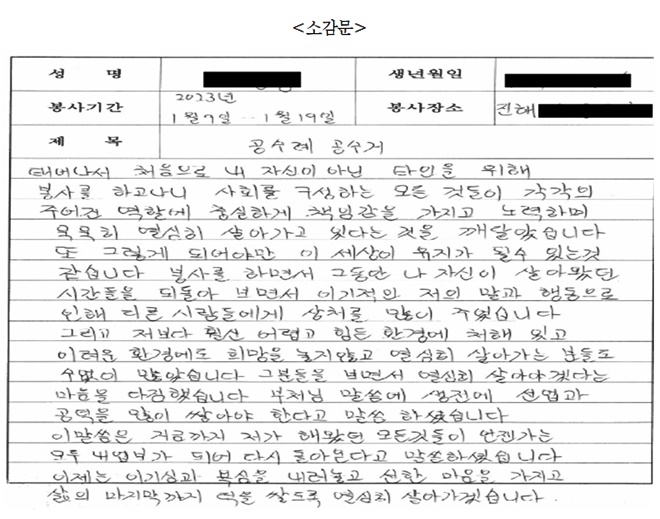 <소감문>
성 명 생년월일
봉사기간 2023년 1월 9일 -- 1월 19일 봉사장소 진해
제 목 공수레 공수거
태어나서 처음으로 내 자신이 아닌 타인을 위해
봉사를 하고나니 사회를 구성하는 모든 것들이 각각의
주어진 역할에 충실하게 책임감을 가지고 노력하며
묵묵히 열심히 살아가고 있다는 것을 깨달았습니다
또 그렇게 되어야만 이 세상이 유지가 될수 있는것
같습니다 봉사를 하면서 그동안 나 자신이 살아왔던
시간들을 되돌아 보면서 이기적인 저의 말과 행동으로
인해 다른 사람들에게 상처를 많이 주었습니다
그리고 저보다 훨신 어렵고 힘든 환경에 처해 있고
어려운 환경에도 희망을 놓지않고 열심히 살아가는 분들도
수없이 많았습니다 그분들을 보면서 열심히 살아야겠다는
마음을 다짐했습니다 부처님 말씀에 생전에 선업과
공덕을 많이 쌓아야 한다고 말씀 하셨습니다
이말씀은 지금까지 저가 해왔던 모든것들이 언젠가는
모두 내업부가 되어 다시 돌아온다고 말씀하셨습니다
이제는 이기심과 욕심을 내려놓고 선한 마음을 가지고
삶의 마지막까지 덕을 쌓도록 열심히 살아가겠습니다.